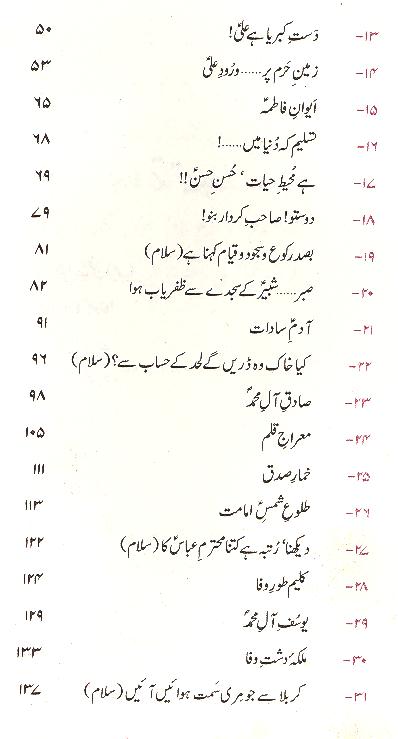 ۱۳- دَستِ کبریا ہے علیؑ! ۵۰
۱۴- زمینِ حَرم پر......ورُودِ علیؑ ۵۳
۱۵- اَیوانِ فاطمہؑ ۶۵
۱۶- تسلیم کہ دُنیا میں......! ۶۸
۱۷- ہے مُحیطِ حیات، حُسنِ حسنؑ!! ۶۹
۱۸- دوستو! صاحبِ کردار بنو! ۷۹
۱۹- بصد رکوع و سجود و قیام کہنا ہے (سلام) ۸۱
۲۰- صبر......شبیرؑ کے سجدے سے ظفریاب ہوا ۸۲
۲۱- آدمِؑ سادات ۹۱
۲۲- کیا خاک وہ ڈریں گے لحد کے حساب سے؟ (سلام) ۹۶
۲۳- صادقِ آلِ محمدؐ ۹۸
۲۴- معراجِ قلم ۱۰۵
۲۵- خمارِ صدق ۱۱۱
۲۶- طلوعِ شمسِؑ امامت ۱۱۳
۲۷- دیکھنا، رُتبہ ہے کتنا محترم عباسؑ کا (سلام) ۱۲۲
۲۸- کلیمِ طورِ وفا ۱۲۴
۲۹- یوسُفِ آلِ محمدؐ ۱۲۹
۳۰- ملکۂ دشتِ وفا ۱۳۳
۳۱- کربلا سے جو مِری سَمت ہوائیں آئیں (سلام) ۱۳۷